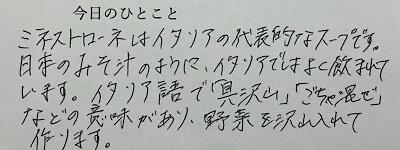 今日のひとこと
ミネストローネはイタリアの代表的なスープです。
日本のみそ汁のように、イタリアではよく飲まれて
います。イタリア語で「具沢山」「ごちゃ混ぜ」
などの意味があり、野菜を沢山入れて
作ります。